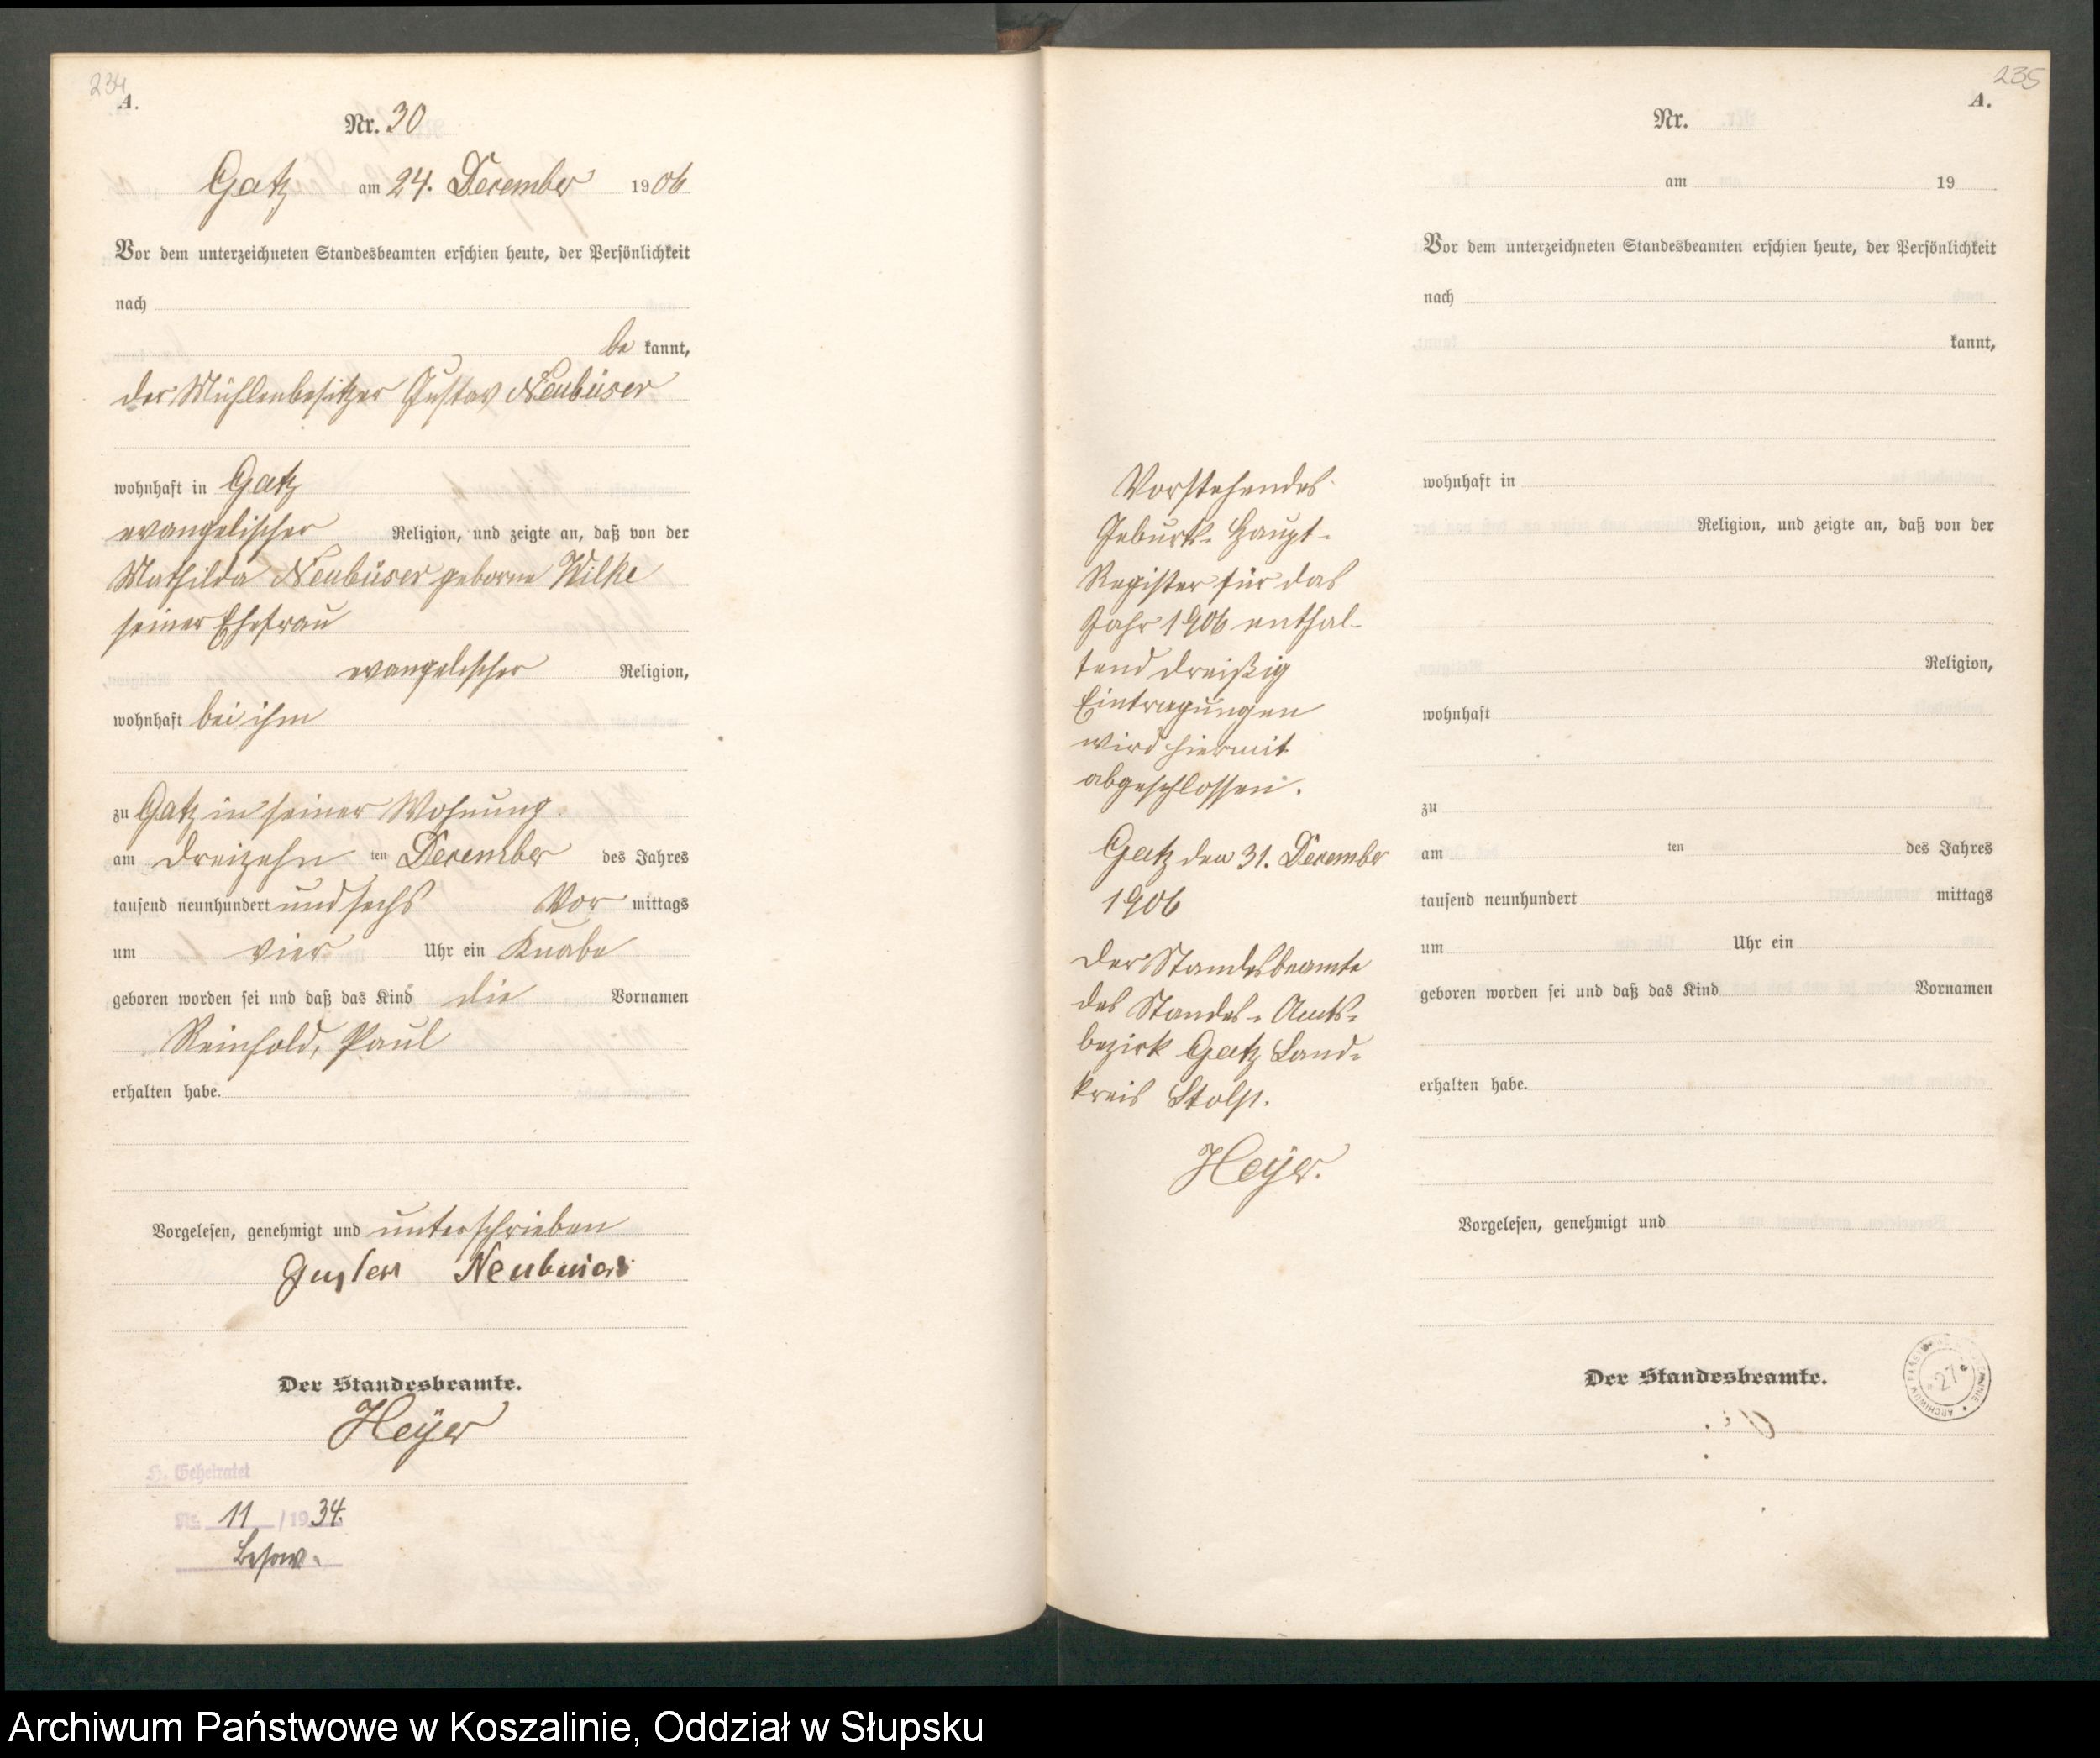 234
A.
Nr. 30
Gatz am 24. December 1906
Vor dem unterzeichneten Standesbeamten erschien heute, der Persönlichkeit
nach
be kannt,
der Mühlenbesitzer Gustav Neubüser
wohnhaft in Gatz
evangelischer Religion, und zeigte an, daß von der
Mathilda Neubüser geborne Wilke
seiner Ehefrau
evangelischer Religion,
wohnhaft bei ihm
zu Gatz in seiner Wohnung
am dreizehn ten December des Jahres
tausend neunhundert und sechs Vor mittags
um vier Uhr ein Knabe
geboren worden sei und daß das Kind die Vornamen
Reinhold, Paul
erhalten habe.
Vorgelesen, genehmigt und unterschrieben
Neubüser
Der Standesbeamte.
Heyer
H. Geheiratet
Nr. 11 / 1934.
235
A.
Nr.
am 19
Vor dem unterzeichneten Standesbeamten erschien heute, der Persönlichkeit
nach
kannt,
wohnhaft in
Religion, und zeigte an, daß von der
Religion,
wohnhaft
zu
am ten des Jahres
tausend neunhundert mittags
um Uhr ein
geboren worden sei und daß das Kind Vornamen
erhalten habe.
Vorgelesen, genehmigt und
Der Standesbeamte.
Vorstehendes
Geburts-Haupt-
Register für das
Jahr 1906 enthal-
tend dreißig
Eintragungen
wird hiermit
abgeschlossen.
Gatz den 31. December
1906
Der Standesbeamte
des Standes-Amts-
bezirk Gatz Land-
kreis Stolp.
Heyer.
27
Archiwum Państwowe w Koszalinie, Oddział w Słupsku